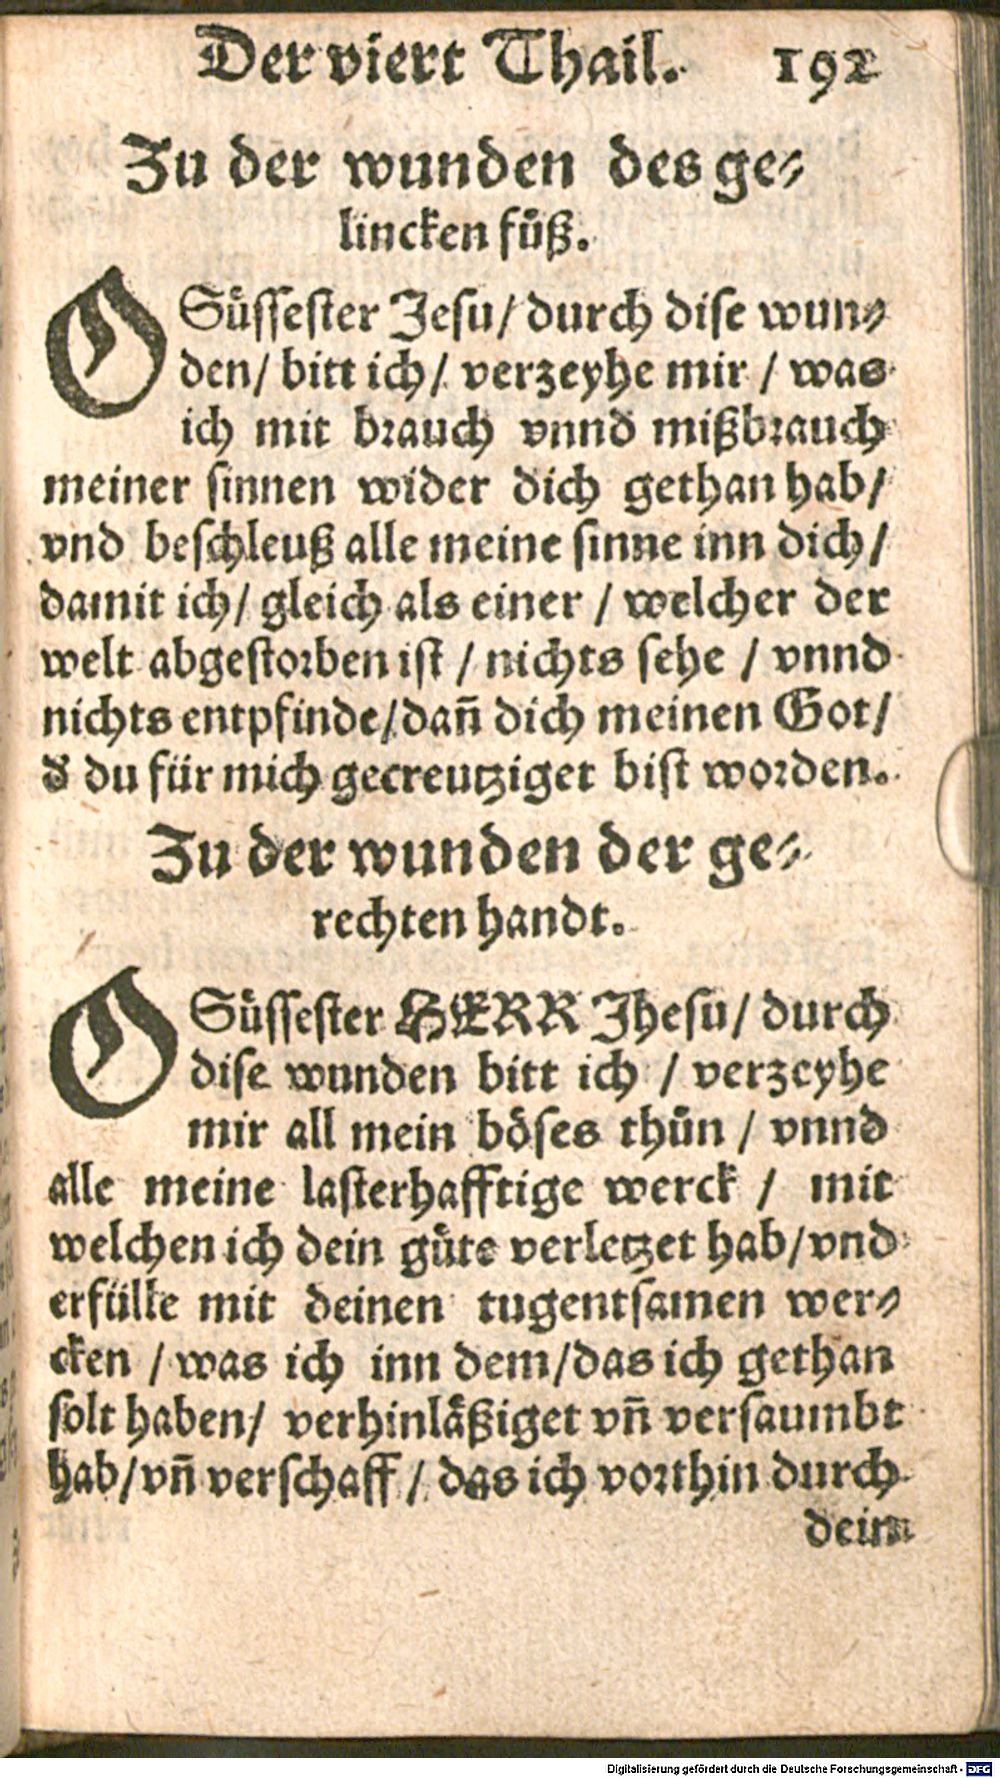 Der viert Thail. 192
Zu der wunden des ge⸗
lincken fuͤß.
O Suͤssester Jesu/ durch dise wun⸗
den/ bitt ich/ verzeyhe mir / was
ich mit brauch vnnd mißbrauch
meiner sinnen wider dich gethan hab/
vnd beschleuß alle meine sinne inn dich/
damit ich/ gleich als einer / welcher der
welt abgestorben ist / nichts sehe / vnnd
nichts entpfinde/ dañ dich meinen Got/
d du für mich gecreutziget bist worden.
Zu der wunden der ge⸗
rechten handt.
O Suͤssester HERR Jhesu/ durch
dise wunden bitt ich / verzeyhe
mir all mein boͤses thuͦn / vnnd
alle meine lasterhafftige werck / mit
welchen ich dein guͤte verletzet hab/ vnd
erfülle mit deinen tugentsamen wer⸗
cken / was ich inn dem/ das ich gethan
solt haben/ verhinlaͤßiget vñ versaumbt
hab/ vñ verschaff / das ich vorthin durch
dein
Digitalisierung gefördert durch die Deutsche Forschungsgemeinschaft - DFG